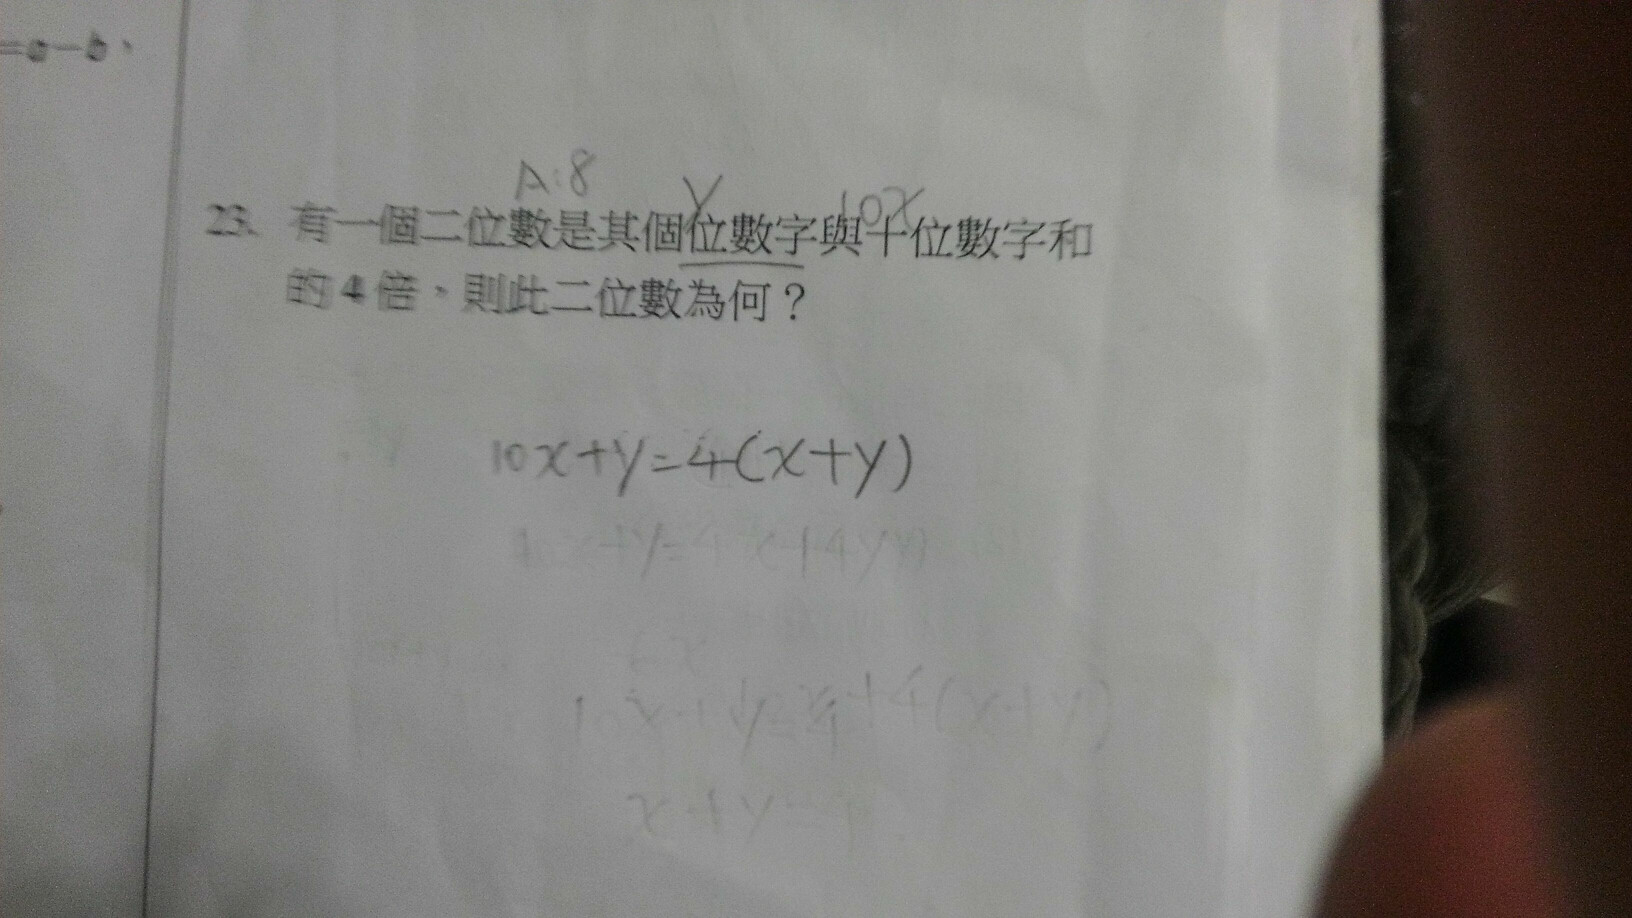 =a-b，
A:8 y 10x
23. 有一個二位數是其個位數字與十位數字和
的4倍，則此二位數為何？
10x+y=4(x+y)